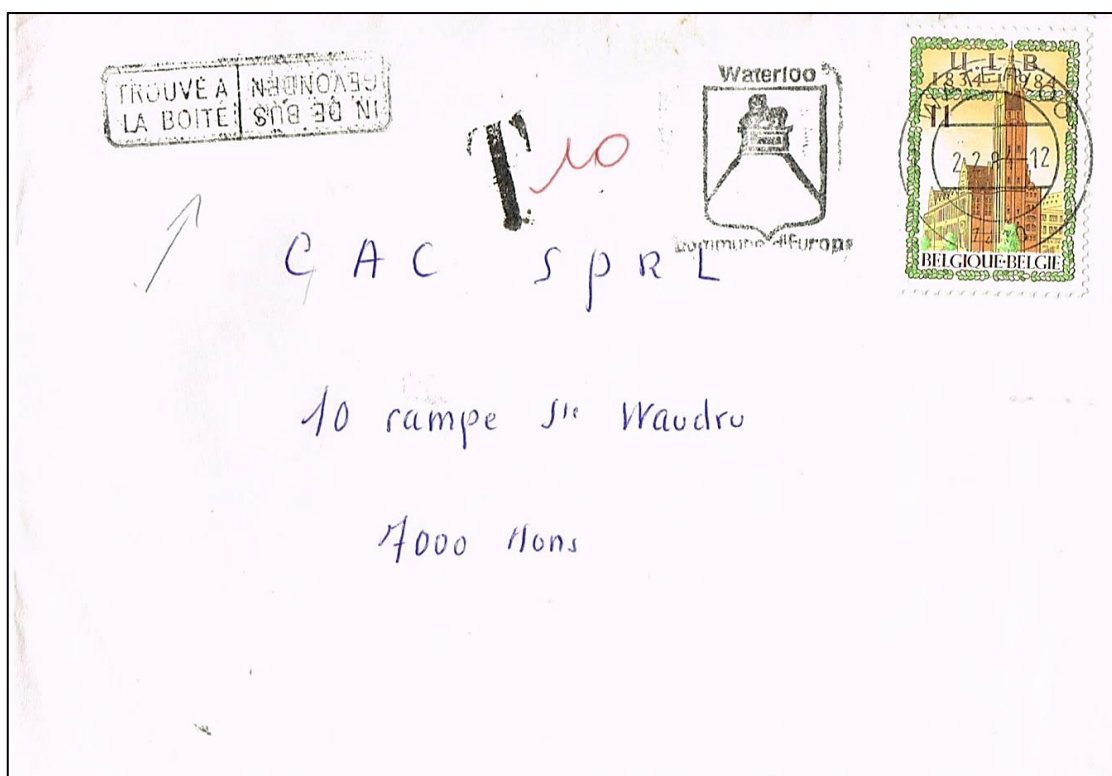 TROUVÉ A
LA BOITE
GEVONDEN
IN DE BUS
T 10
Waterloo
Commune d'Europe
U.L.B.
1834 1984
11
2-2.84-12
BELGIQUE-BELGIE
C A C SPRL
10 rampe Ste Waudru
7000 Mons